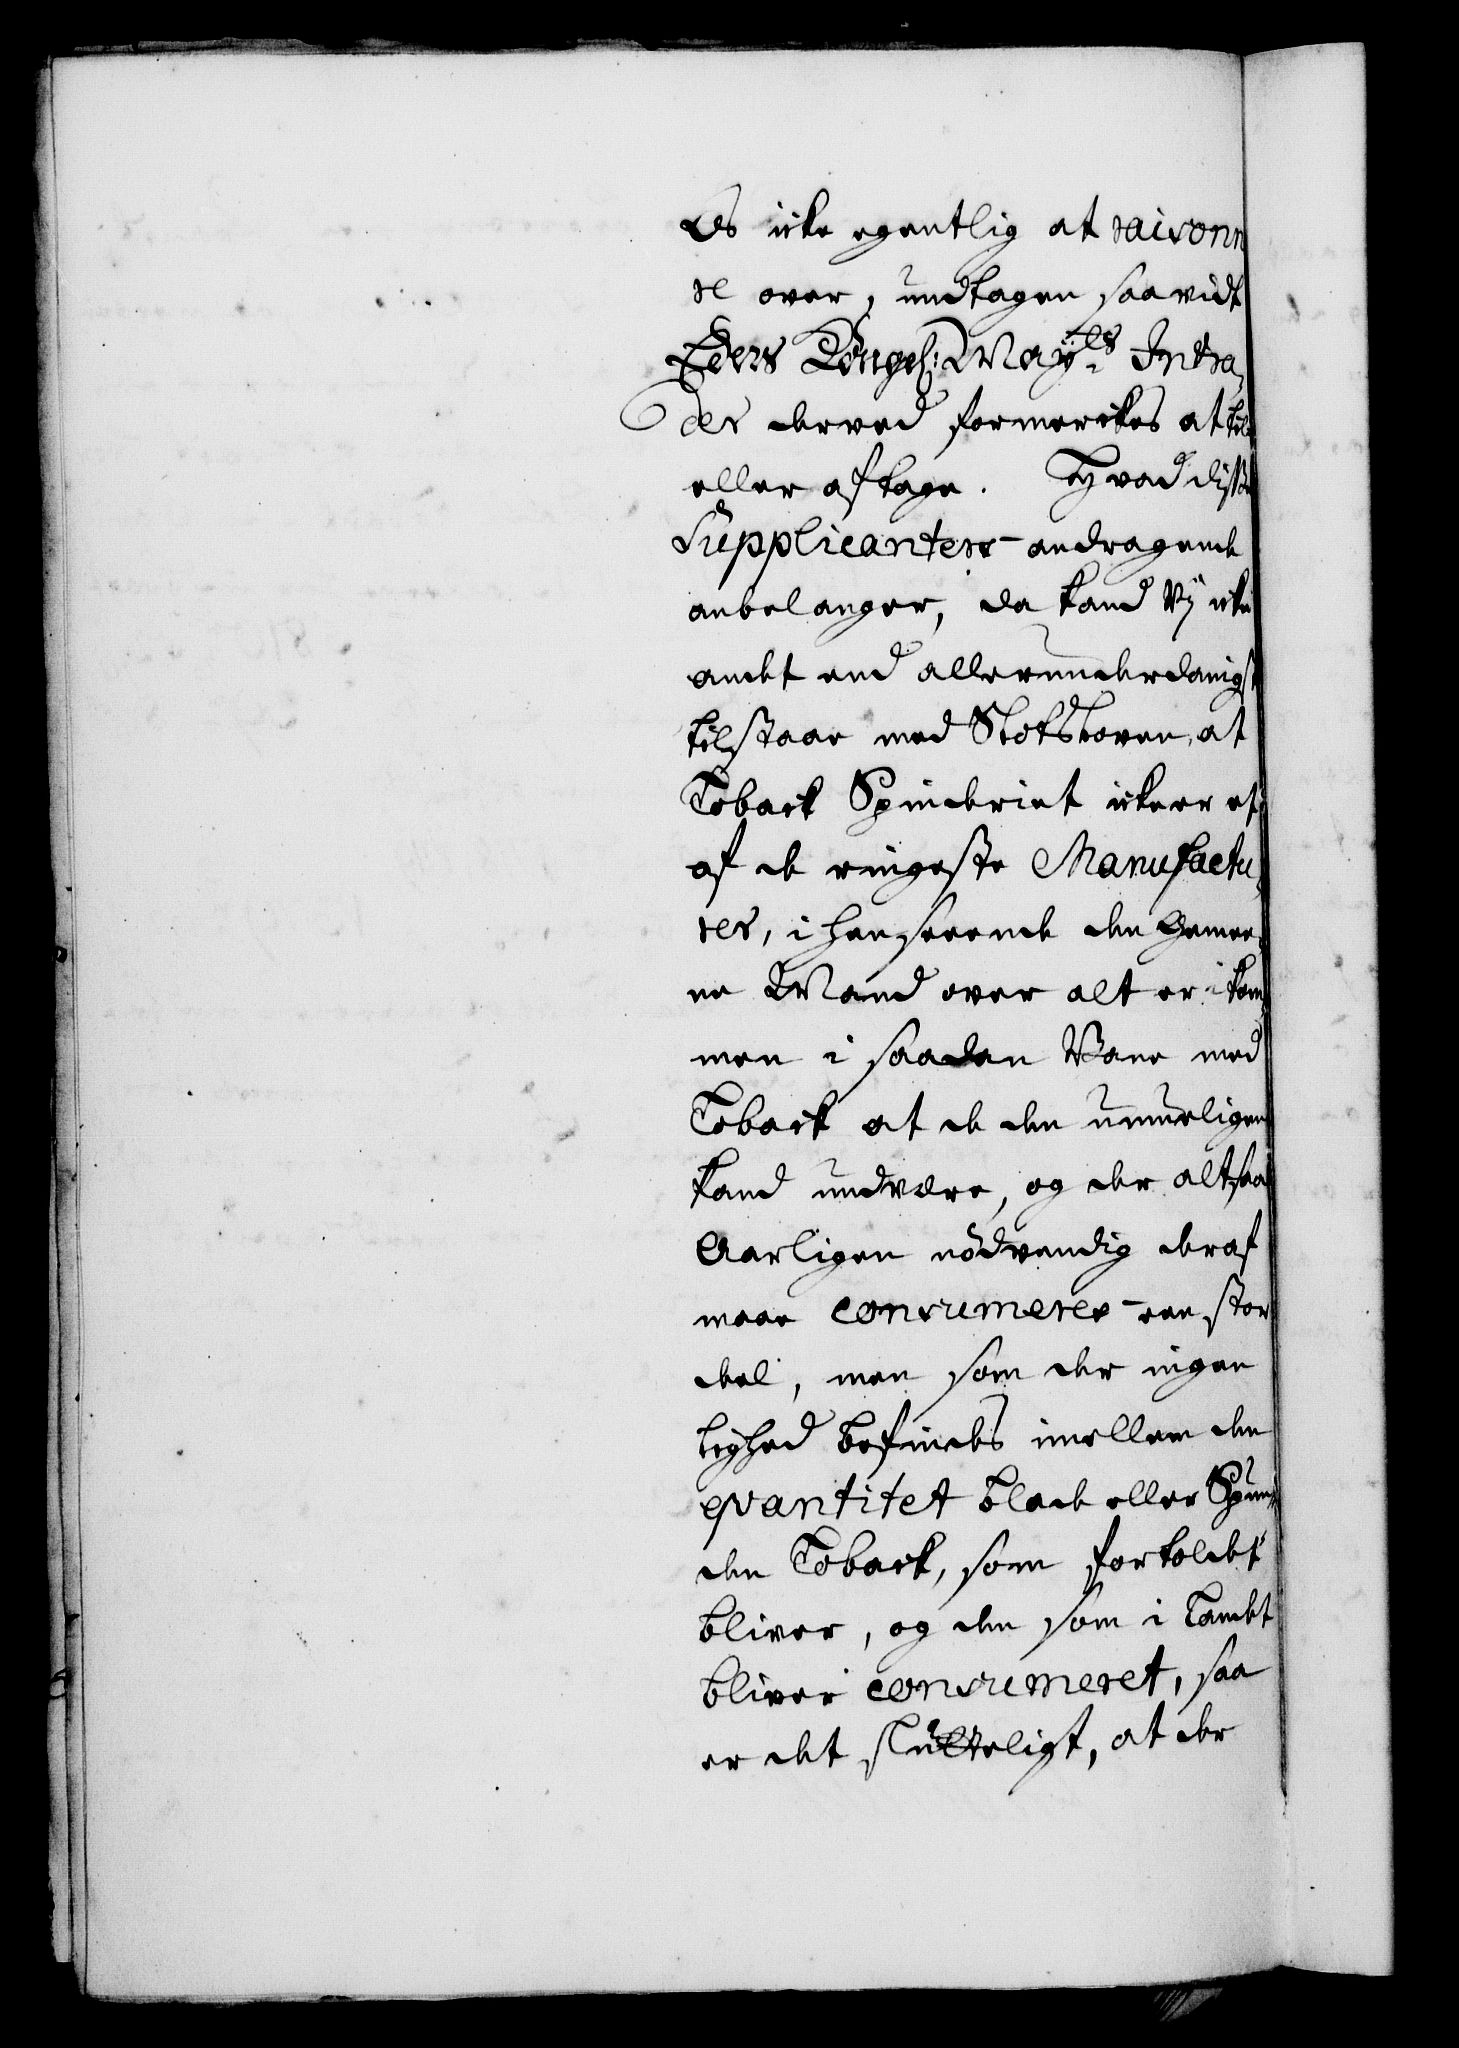 Os icke egentlig at raisonn
re over, undtagen saavidt
Eders Kongel: May:ts Intra,
der derved formerckes at til
eller aftage. Hvad disse
Supplicanters andragende
anbelanger, da kand Vij icke
andet end allerunderdanigst
tilstaae med Slotsloven, at
Toback Spinderiet icke er et
af de ringeste Manufactu,
rer, i henseende den Gemee,
ne Mand over alt er ikom,
men i saadan Vane med
Toback at de den umueligen
kand undvære, og der altsaa
Aarligen nödvendig deraf
maae consumeres een stor
deel, men som der ingen
lighed befindes imellem den
qvantitet blade eller Spun,
den Toback, som fortoldet
bliver, og den som i Landet
bliver consumeret, saa
er det slutteligt, at der